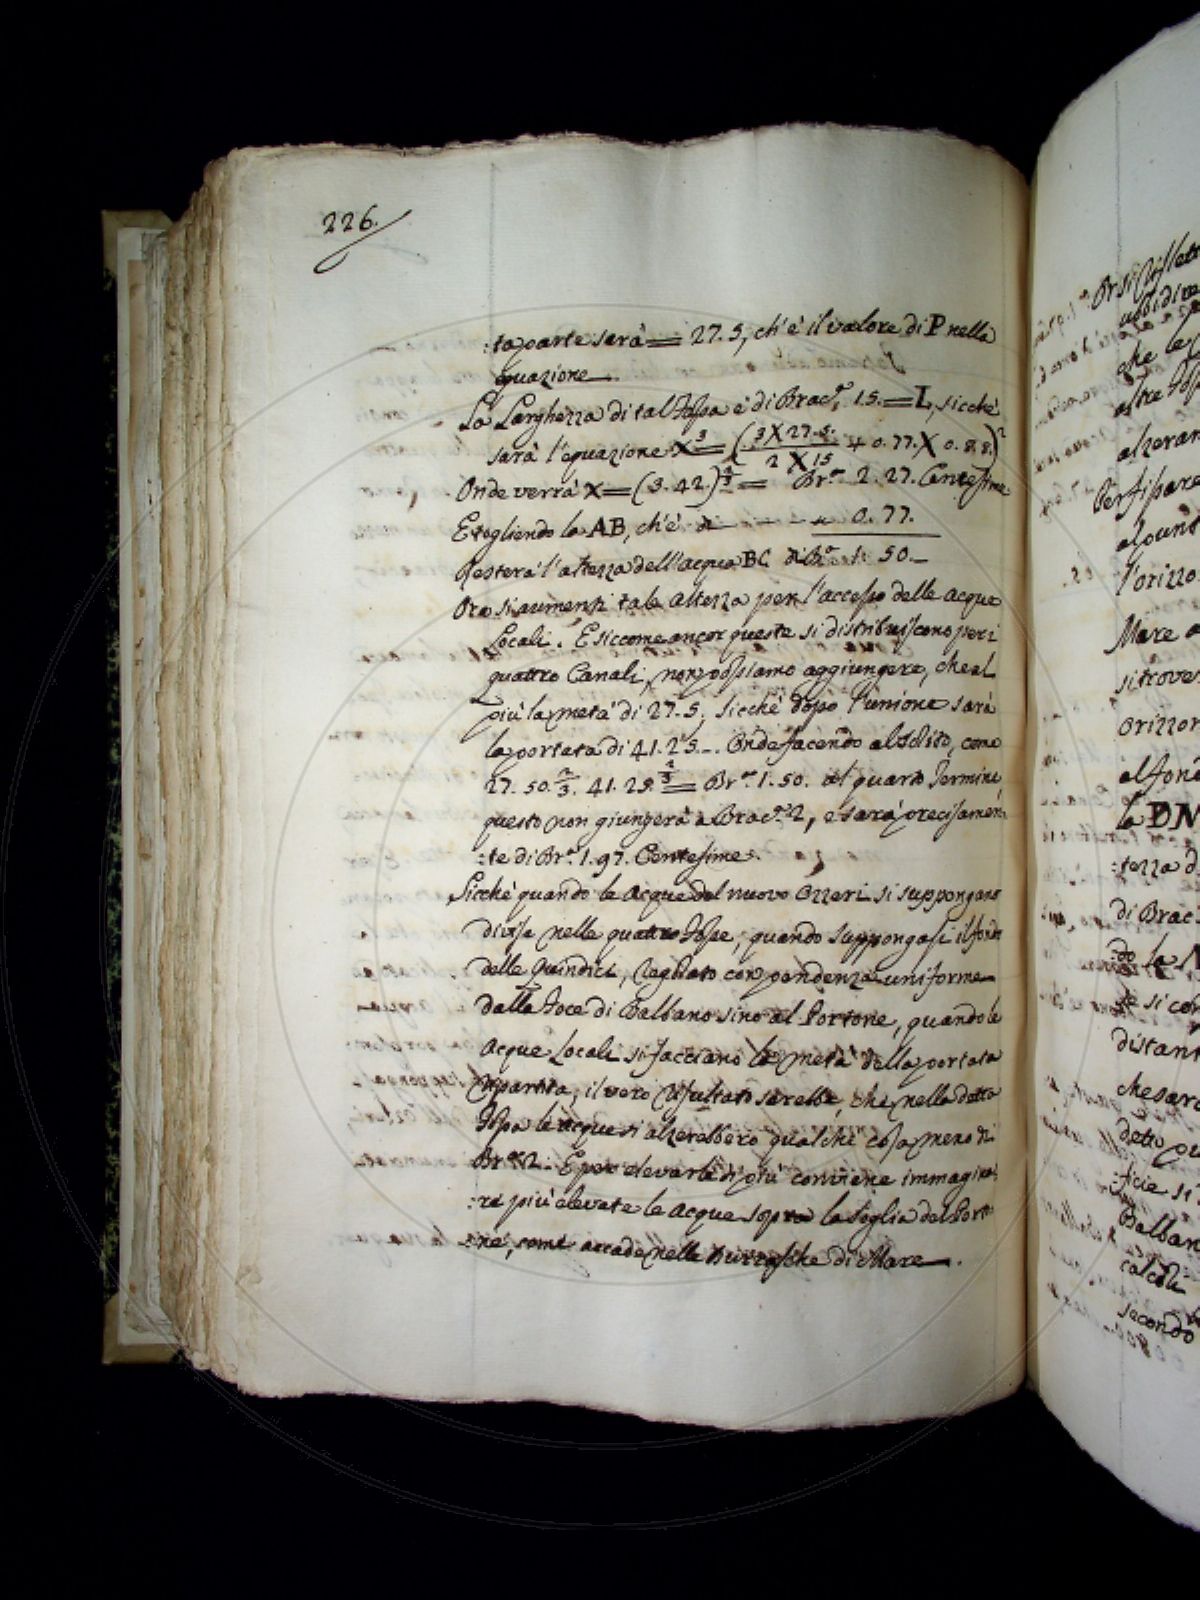 226.
:ta parte sarà = 27.5, ch'è il valore di P nella
equazione
La Larghezza di tal Fossa è di Brac.ª 15. = L, sicchè
sarà l'equazione X^3 = (3X27.5./2X15 + 0.77.X 0.88.)^2
Onde verrà X = (3.42.)^2/3 = Br.ª 2.27. Centesime
E togliendo la AB, ch'è di - - - 0.77.
Resterà l'altezza dell'acqua BC di Br.ª 1. 50.
Ora si aumenti tale altezza per l'accesso delle acque
Locali. E siccome ancor queste si distribuiscono per i
quattro Canali, non possiamo aggiungere, che al
più la metà di 27.5, sicchè dopo l'unione sarà
la portata di 41.25. Onde facendo al solito, come
27.50.^2/3. 41.25.^2/3 = Br.ª 1.50. al quarto Termine
questo non giungerà a Brac.ª 2, e sarà precisamen:
:te di Br.ª 1.97. Centesime.
Sicchè quando le Acque del nuovo Ozzeri si suppongano
divise nelle quattro Fosse, quando suppongasi il fondo
delle Quindici, regolato con pendenza uniforme
dalla Foce di Balbano sino al Portone, quando le
Acque Locali si facciano la metà della portata
ripartita, il vero risultato sarebbe, che nella detta
Fossa le acque si alzerebbero qualche cosa meno di
Br.ª 2. E per elevarle di più conviene immagina:
:re più elevate le acque sopra la soglia del Porto:
:ne, come accade nelle Burrasche di Mare.
Or si riflett
ubbidire
che la
altre Fosse
alzeran
Per fissare
alcuno
l'orizzo
Mare a
si trove
Orizzon
al fond
la DN
:tezza d
di Brac.
do la N
si con
distan
che sarà
detto qu
:ficie si
Balban
calcoli
secondo